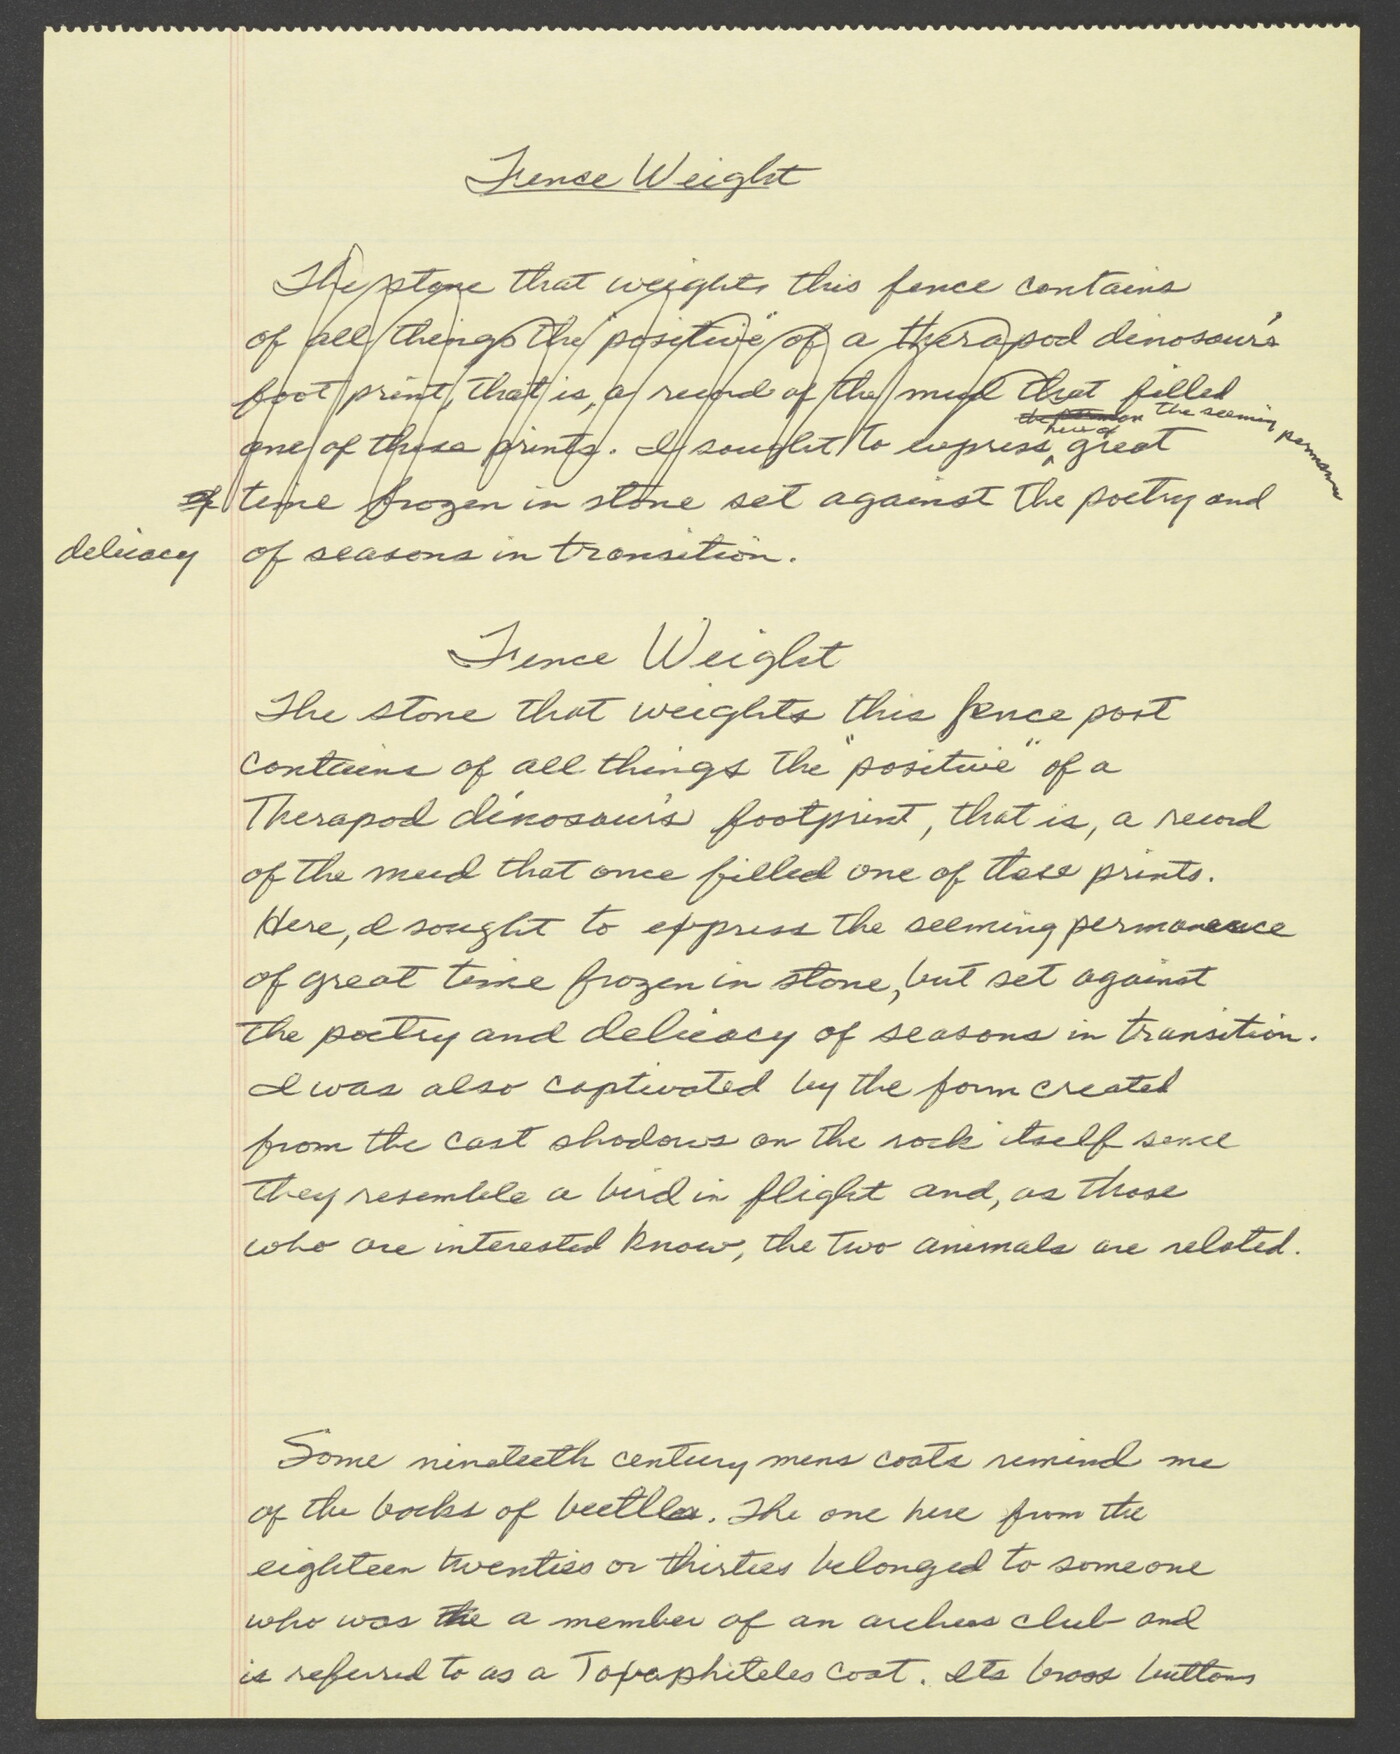 Fence Weight
The stone that weights this fence contains
of all things the "positive" of a therapod dinosaur's
foot print, that is, a record of the mud that filled
the perman the seeming permanen
here of
one of these prints. I sought to express great
of time frozen in stone set against the poetry and
delicacy of seasons in transition.
Fence Weight
The stone that weights this fence post
contains of all things the "positive" of a
Therapod dinosaur's footprint, that is, a record
of the mud that once filled one of these prints.
Here, I sought to express the seeming permanence
of great time frozen in stone, but set against
the poetry and delicacy of seasons in transition.
I was also captivated by the form created
from the cast shadows on the rock itself since
they resemble a bird in flight and, as those
who are interested know, the two animals are related.
Some nineteeth century mens coats remind me
of the backs of beetles. The one here from the
eighteen twenties or thirties belonged to someone
who was the a member of an archers club and
is referred to as a Toxophiteles coat. Its brass buttons